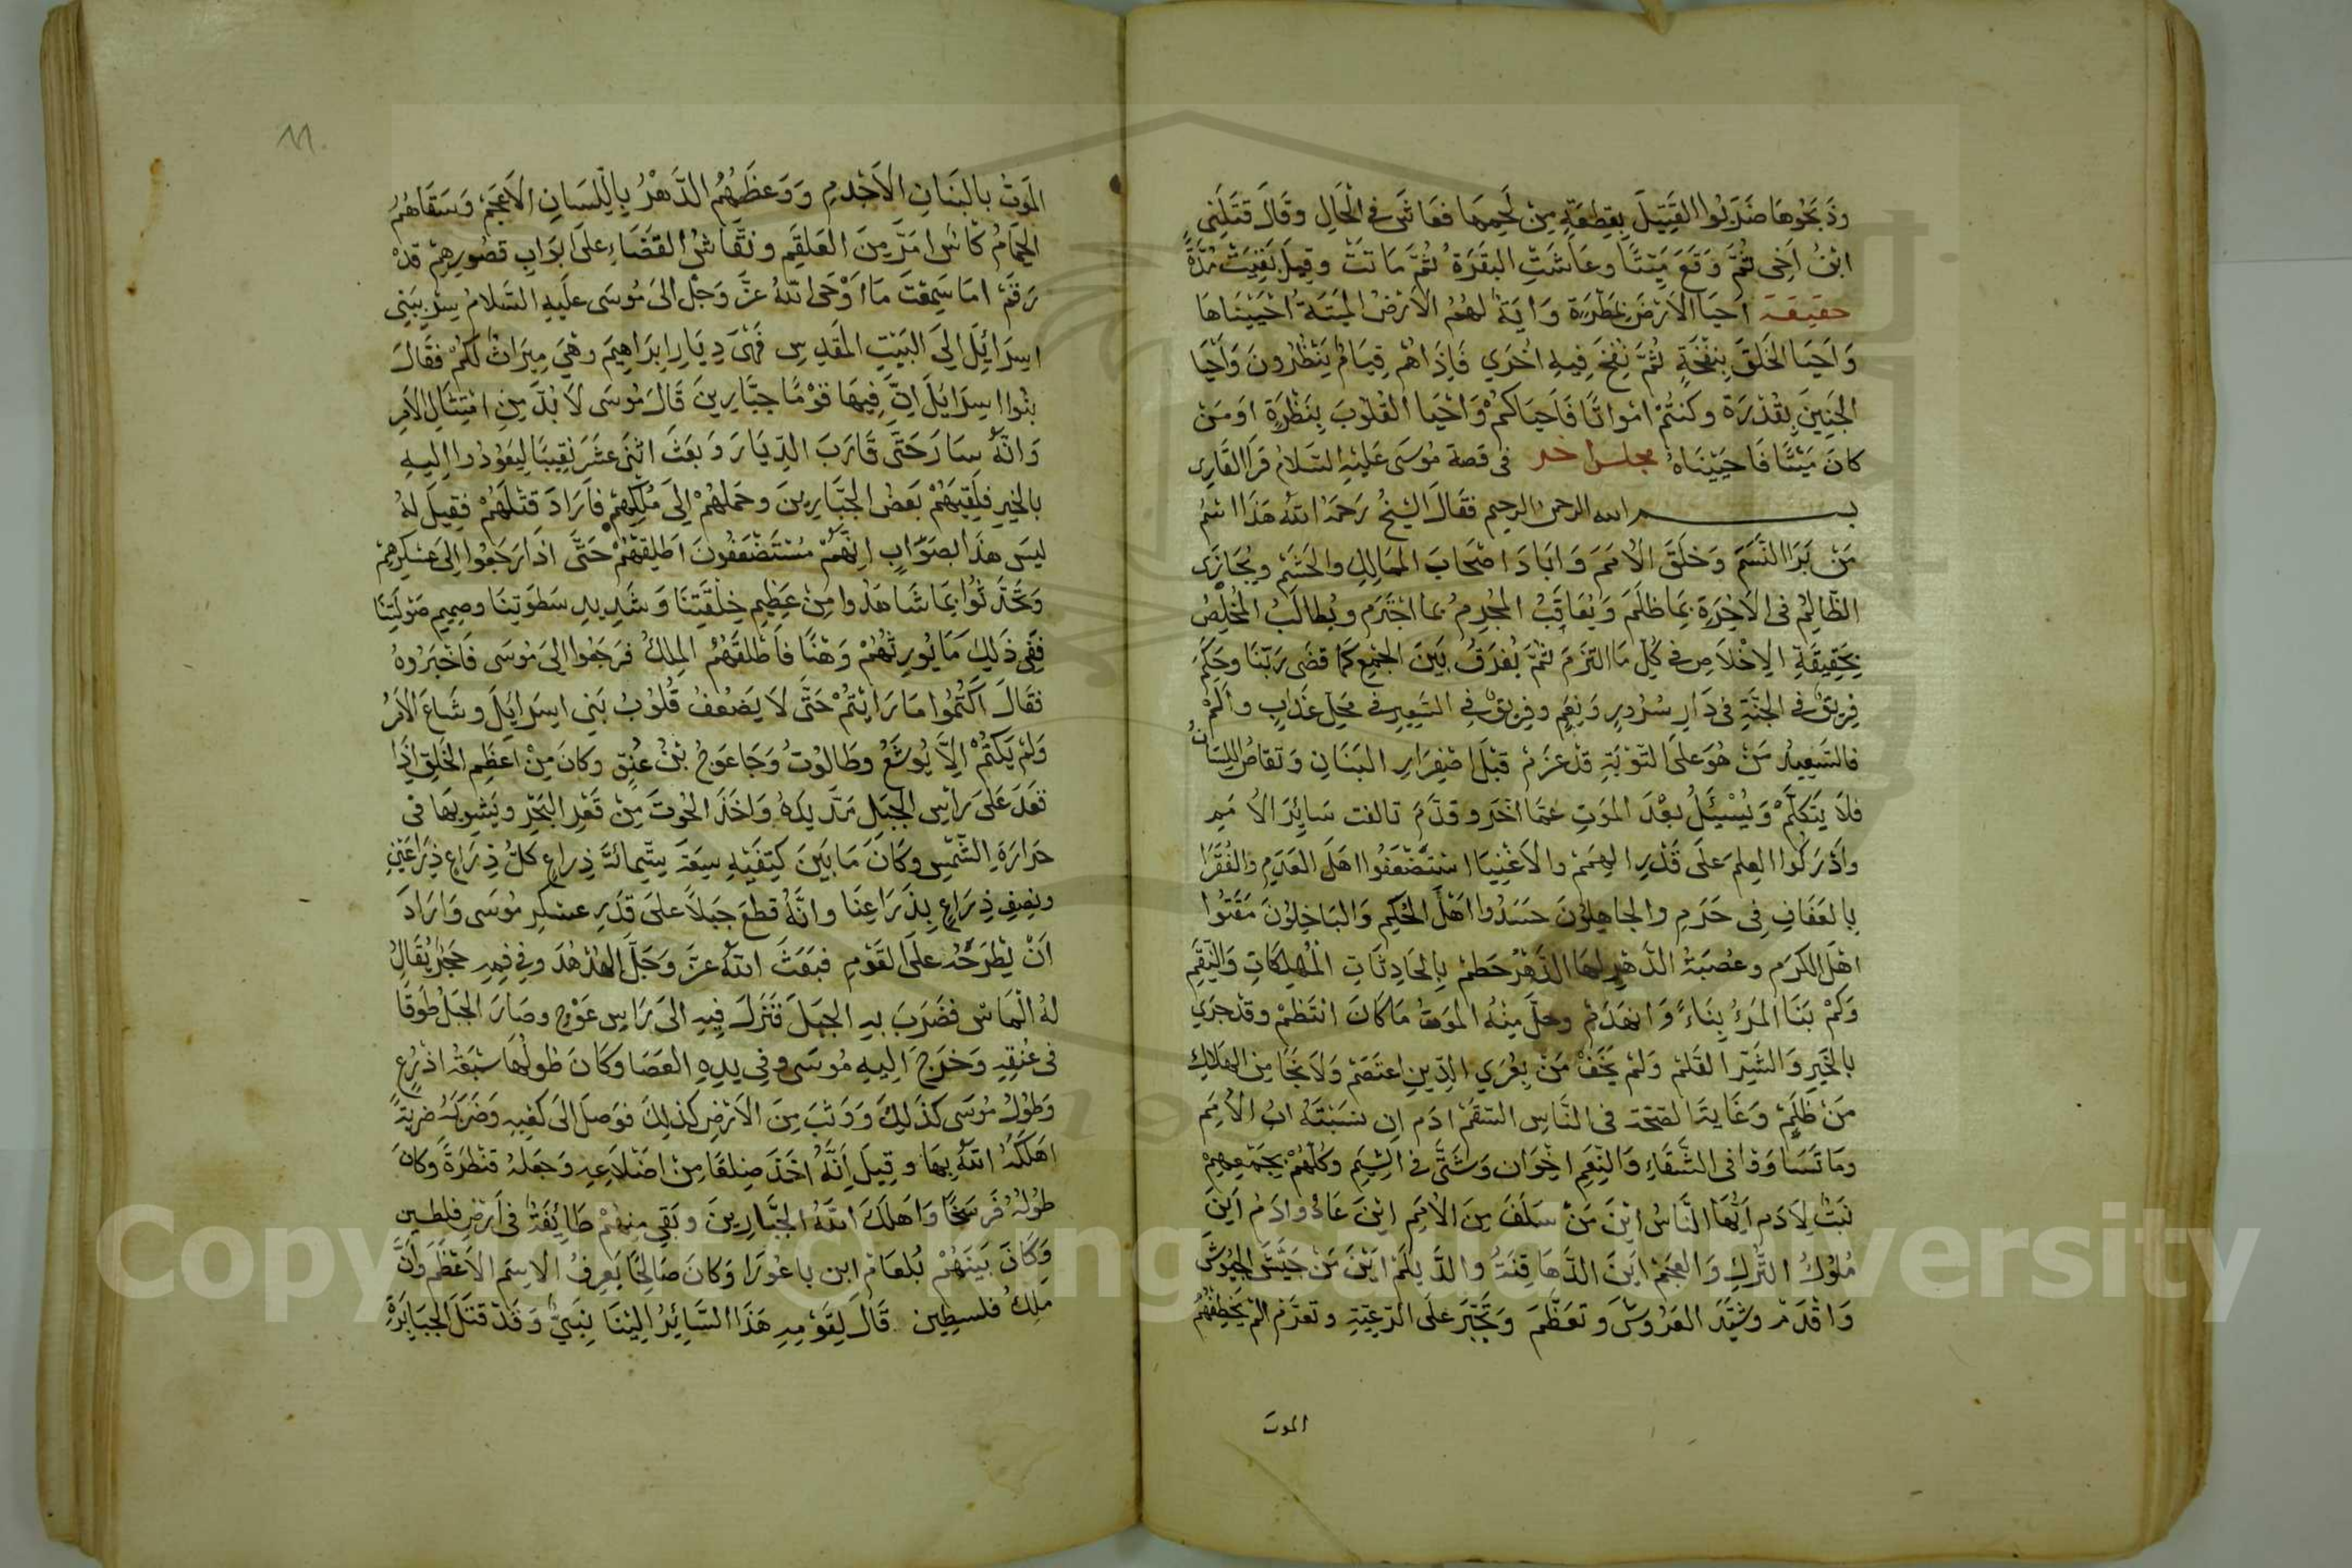 وذبحوها ضربوا القتيل بقطعة من لحمها فعاش في الحال وقال قتلني
ابن اخي ثم وقع ميتا وعاشت البقرة ثم ماتت وقيل بقيت مدة
حقيقة احيا الارض بمطرة واية لهم الارض الميتة احييناها
واحيا الخلق بنفخة ثم نفخ فيه اخري فاذاهم قيام ينظرون واحيا
الجنين بقدرة وكنتم امواتا فاحياكم واحيا القلوب بنظرة اومن
كان ميتا فاحييناه مجلس اخر في قصة موسى عليه السلام قرا القاري
بسم الله الرحمن الرحيم فقال الشيخ رحمه الله هذا اسم
من برا النسم وخلق الامم واباد اصحاب الممالك والحشم ويجازى
الظالم في الاخرة بما ظلم ويعاقب المجرم بما اجترم ويطالب المخلص
بحقيقة الاخلاص في كل ما التزم ثم يفرق بين الجمع كما قضى ربنا وحكم
فريق في الجنة في دار سرور ونعم وفريق في السعير في محل عذاب والم
فالسعيد من هو على التوبة قد عزم قبل اصفرار البنان وتقاص اللسان
فلا يتكلم ويسئل بعد الموت عما اخر وقدم تالفت سائر الامم
وادركوا العلم على قدر الهمم والاغنيا استضعفوا اهل العدم والفقرا
بالعفاف في حرم والجاهلون حسدوا اهل الحكم والباخلون مقتوا
اهل الكرم وعصبة الدهر لها الدهر حطم بالحادثات المهلكات والنقم
وكم بنا المرء بناء وانهدم وحل منه الموت ما كان انتظم وقد جري
بالخير والشر القلم ولم يخف من بعري الدين اعتصم ولا نجا من الهلاك
من ظلم وغاية الصحة في الناس السقم ادم ان نسبته اب الامم
وما تساووا في الشقاء والنعم اخوان وشتى في الشيم وكلهم بجمعهم
نبت لادم ايها الناس اين من سلف من الامم اين عاد وادم اين
ملوك الترك والعجم اين الدهاقنة والديلم اين من جيش الجيوش
واقدم وشيد العروش وتعظم وتجبر على الرعية وتعزم الم يخطفهم
الموت
١١
الموت بالبنان الاجذم ووعظهم الدهر باللسان الاعجم وسقاهم
الحمام كاسا امر من العلقم ونقاش القضاء على ابواب قصورهم قد
رقم اما سمعت ما اوحى الله عز وجل الى موسى عليه السلام سر ببني
اسرائل الى البيت المقدس فهى ديار ابراهيم وهي ميراث لكم فقال
بنوا اسرائل ان فيها قوما جبارين قال موسى لا بد من امتثال الامر
وانه سار حتى قارب الديار وبعث اثنى عشر نقيبا ليعودوا اليه
بالخير فلقيهم بعض الجبارين وحملهم الى ملكهم فاراد قتلهم فقيل له
ليس هذا بصواب انهم مستضعفون اطلقهم حتى اذا رجعوا الى عسكرهم
وتحدثوا بما شاهدوا من عظيم خلقتنا وشديد سطوتنا وصميم صولتنا
ففي ذلك ما يورثهم وهنا فاطلقهم الملك فرجعوا الى موسى فاخبروه
فقال اكتموا ما رايتم حتى لا يضعف قلوب بني اسرايل وشاع الامر
ولم يكتم الا يوشع وطالوت وجا عوج بن عنق وكان من اعظم الخلق اذا
قعد على راس الجبل مد يده واخذ الحوت من قعر البحر ويشويها في
حرارة الشمس وكان ما بين كتفيه سعة ستمائة ذراع كل ذراع ذراعين
ونصف ذراع بذراعنا وانه قطع جبلا على قدر عسكر موسى واراد
ان يطرحه على القوم فبعث الله عز وجل الهدهد وفي فيه حجر يقال
له الماس فضرب به الجبل فنزل فيه الى راس عوج وصار الجبل طوقا
في عنقه وخرج اليه موسى وفي يده العصا وكان طولها سبعة اذرع
وطول موسى كذلك ووثب من الارض كذلك فوصل الى كعبه وضربه ضربة
اهلكه الله بها وقيل انه اخذ ضلعا من اضلاعه وجعله قنطرة وكان
طوله فرسخا واهلك الله الجبارين وبقي منهم طائفة في ارض فلطسين
وكان بينهم بلعام ابن باعورا وكان صالحا يعرف الاسم الاعظم وان
ملك فلسطين قال لقومه هذا السائر الينا نبي وقد قتل الجبابرة
Copyright © King Saud University